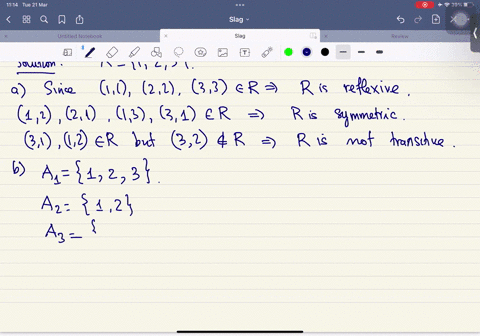 11:14 Tue 21 Mar
39%
Slag
Untitled Notebook
Slag
Review
Solution:
a) Since (1,1), (2,2), (3,3) ∈ R ⇒ R is reflexive.
(1,2), (2,1), (1,3), (3,1) ∈ R ⇒ R is symmetric.
(3,1), (1,2) ∈ R but (3,2) ∉ R ⇒ R is not transitive.
b) A₁ = {1, 2, 3}.
A₂ = {1, 2}
A₃ = {